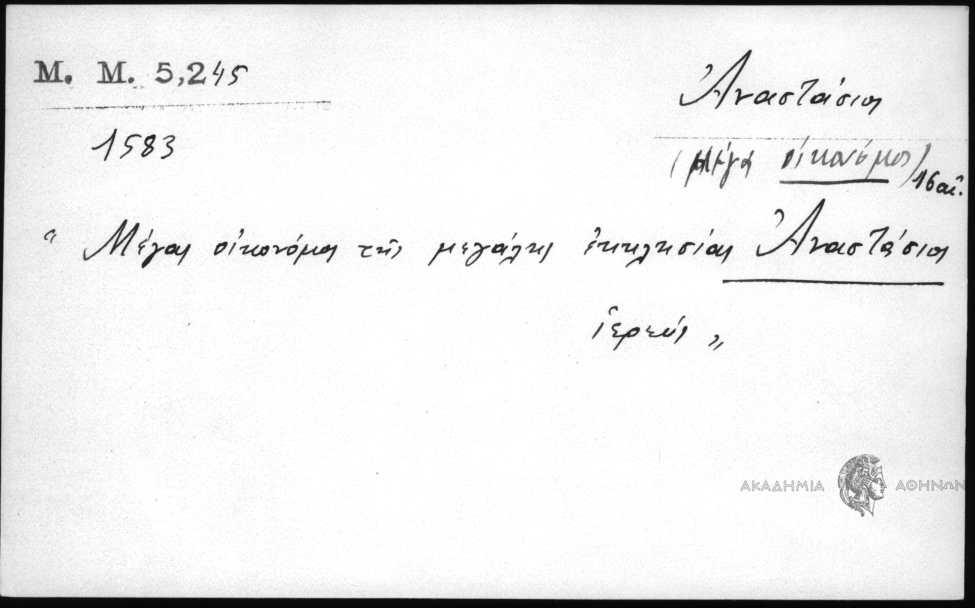 M. M. 5,245
Ἀναστάσιος
1583
(μέγας οἰκονόμος) 16 αἰ.
“ Μέγας οἰκονόμος τῆς μεγάλης ἐκκλησίας Ἀναστάσιος
ἱερεύς „
ΑΚΑΔΗΜΙΑ ΑΘΗΝΩΝ